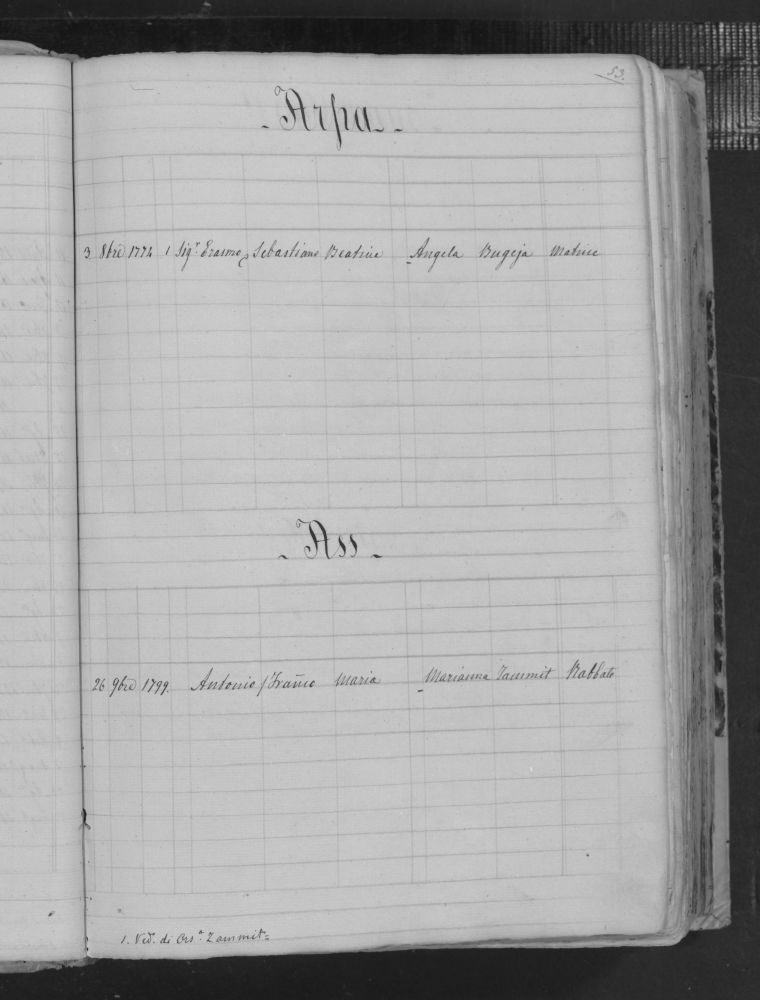 53.
- Arpa -
3 8bre 1774 1 Sigr. Erasmo Sebastiano Beatrice Angela Bugeja Matrice
- Ass -
26 9bre 1799. Antonio Franco Maria Marianna Zammit Rabbato
1. Ved. di Ors.a Zammit=